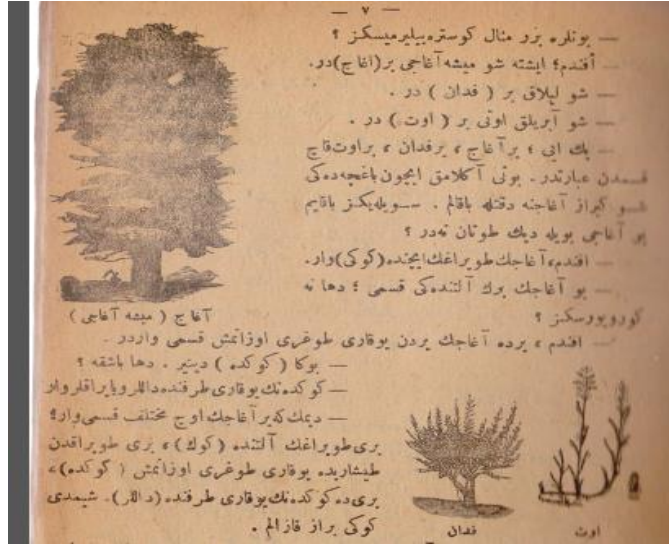 — ٧ —
— بونلره برر مثال كوستره بيليرميسكز ؟
— أفندم؛ ايشته شو ميشه آغاجى بر(اغاج)در.
— شو ليلاق بر ( فدان ) در .
— شو آيريلق اوتى بر ( اوت ) در .
— پك ايى ؛ بر آغاج ، برفدان ، براوت قاچ
قسمدن عبارتدر . بونى آكلامق ايچون باغچه ده كى
شو كيراز آغاجنه دقتله باقالم . سويله يكز باقايم
بو آغاجى بويله ديك طوتان نه در ؟
— افندم، آغاجك طوپراغك ايچنده(كوكى)وار.
— بو آغاجك يرك آلتنده كى قسمى ؛ دها نه
كورويورسكز ؟
آغاج ( ميشه آغاجى )
— افندم ، برده آغاجك يردن يوقارى طوغرى اوزانمش قسمى واردر .
— بوكا ( كوكده ) دينير . دها باشقه ؟
— كوكده نك يوقارى طرفنده داللر وياپراقلر وار
— ديمك كه بر آغاجك اوچ مختلف قسمى وار؛
برى طوپراغك آلتنده (كوك) ، برى طوپراقدن
طيشاريده يوقارى طوغرى اوزانمش ( كوكده) ،
برى ده كوكده نك يوقارى طرفنده (داللر). شيمدى
كوكى براز قازالم .
فدان
اوت